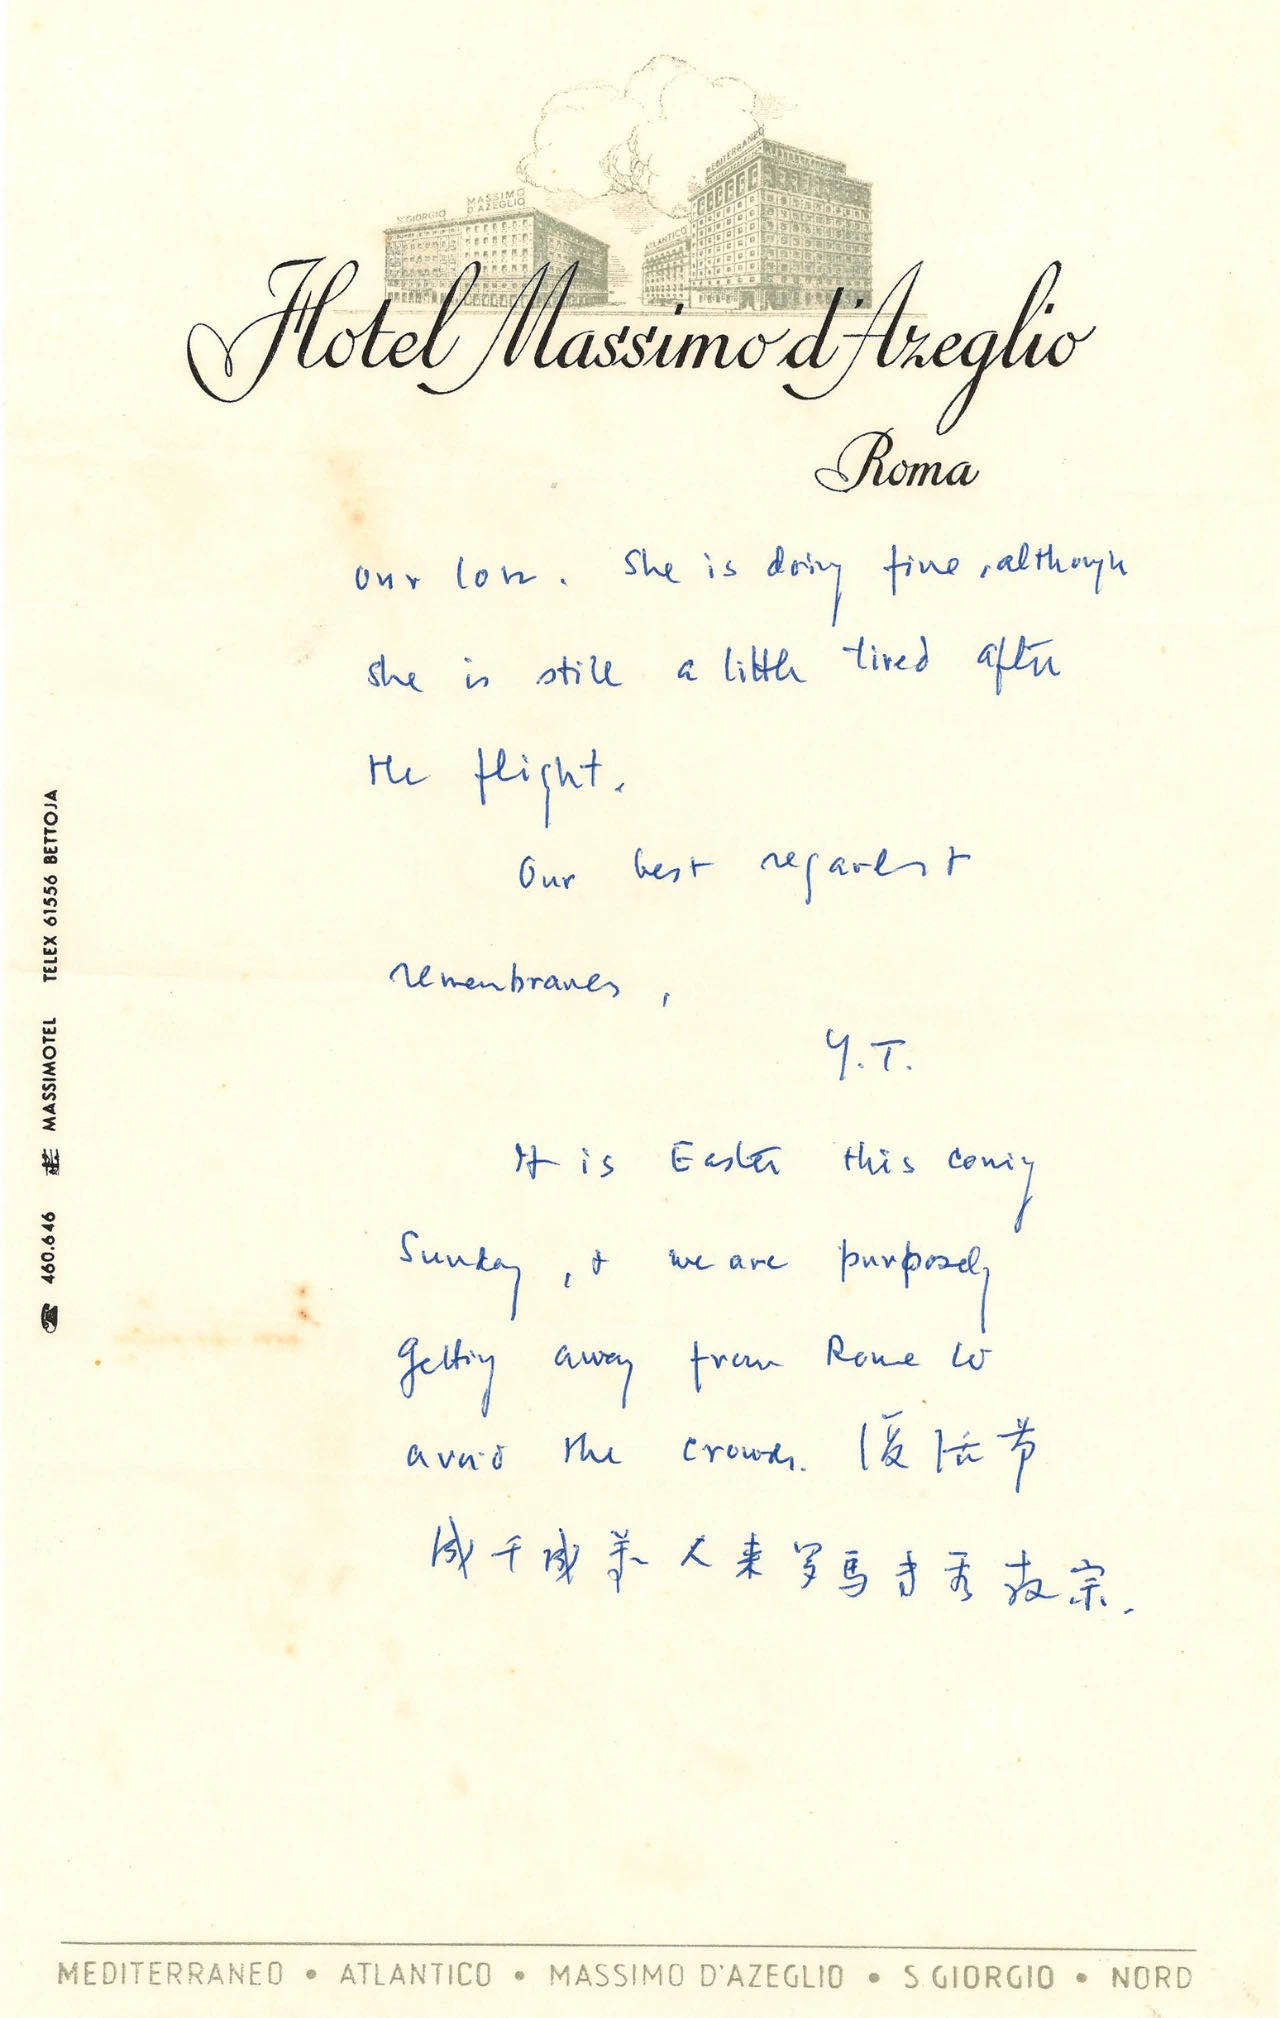 S. GIORGIO
MASSIMO D'AZEGLIO
ATLANTICO
MEDITERRANEO
Hotel Massimo d'Azeglio
Roma
our love. She is doing fine, although
she is still a little tired after
the flight.
Our best regards &
remembrances,
Y.T.
It is Easter this coming
Sunday, & we are purposely
getting away from Rome to
avoid the crowds. 復活节
成千成萬人来罗馬寺看教宗.
460.646 MASSIMOTEL TELEX 61556 BETTOJA
MEDITERRANEO • ATLANTICO • MASSIMO D'AZEGLIO • S. GIORGIO • NORD